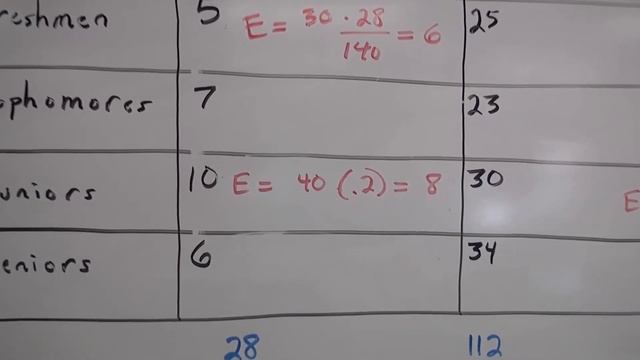 reshmen 5 E = 30 · 28 / 140 = 6 25
ophomores 7 23
uniors 10 E = 40 (.2) = 8 30 E
eniors 6 34
28 112